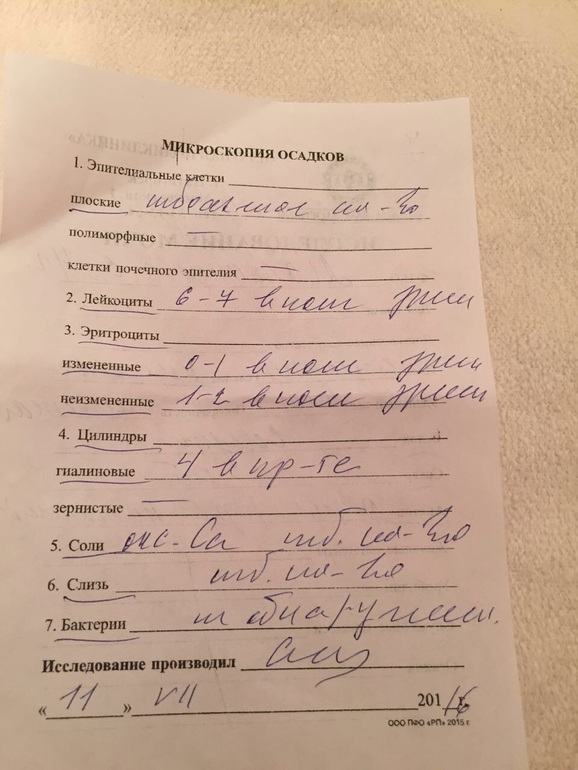 МИКРОСКОПИЯ ОСАДКОВ
1. Эпителиальные клетки
плоские небольшое кол-во
полиморфные —
клетки почечного эпителия —
2. Лейкоциты 6-7 в поле зрения
3. Эритроциты
измененные 0-1 в поле зрения
неизмененные 1-2 в поле зрения
4. Цилиндры
гиалиновые 4 в пр-те
зернистые —
5. Соли окс-Са неб. кол-во
6. Слизь неб. кол-во
7. Бактерии не обнаружены.
Исследование производил
« 11 » VII 2016 г.
ООО ПФО «РП» 2015 г.